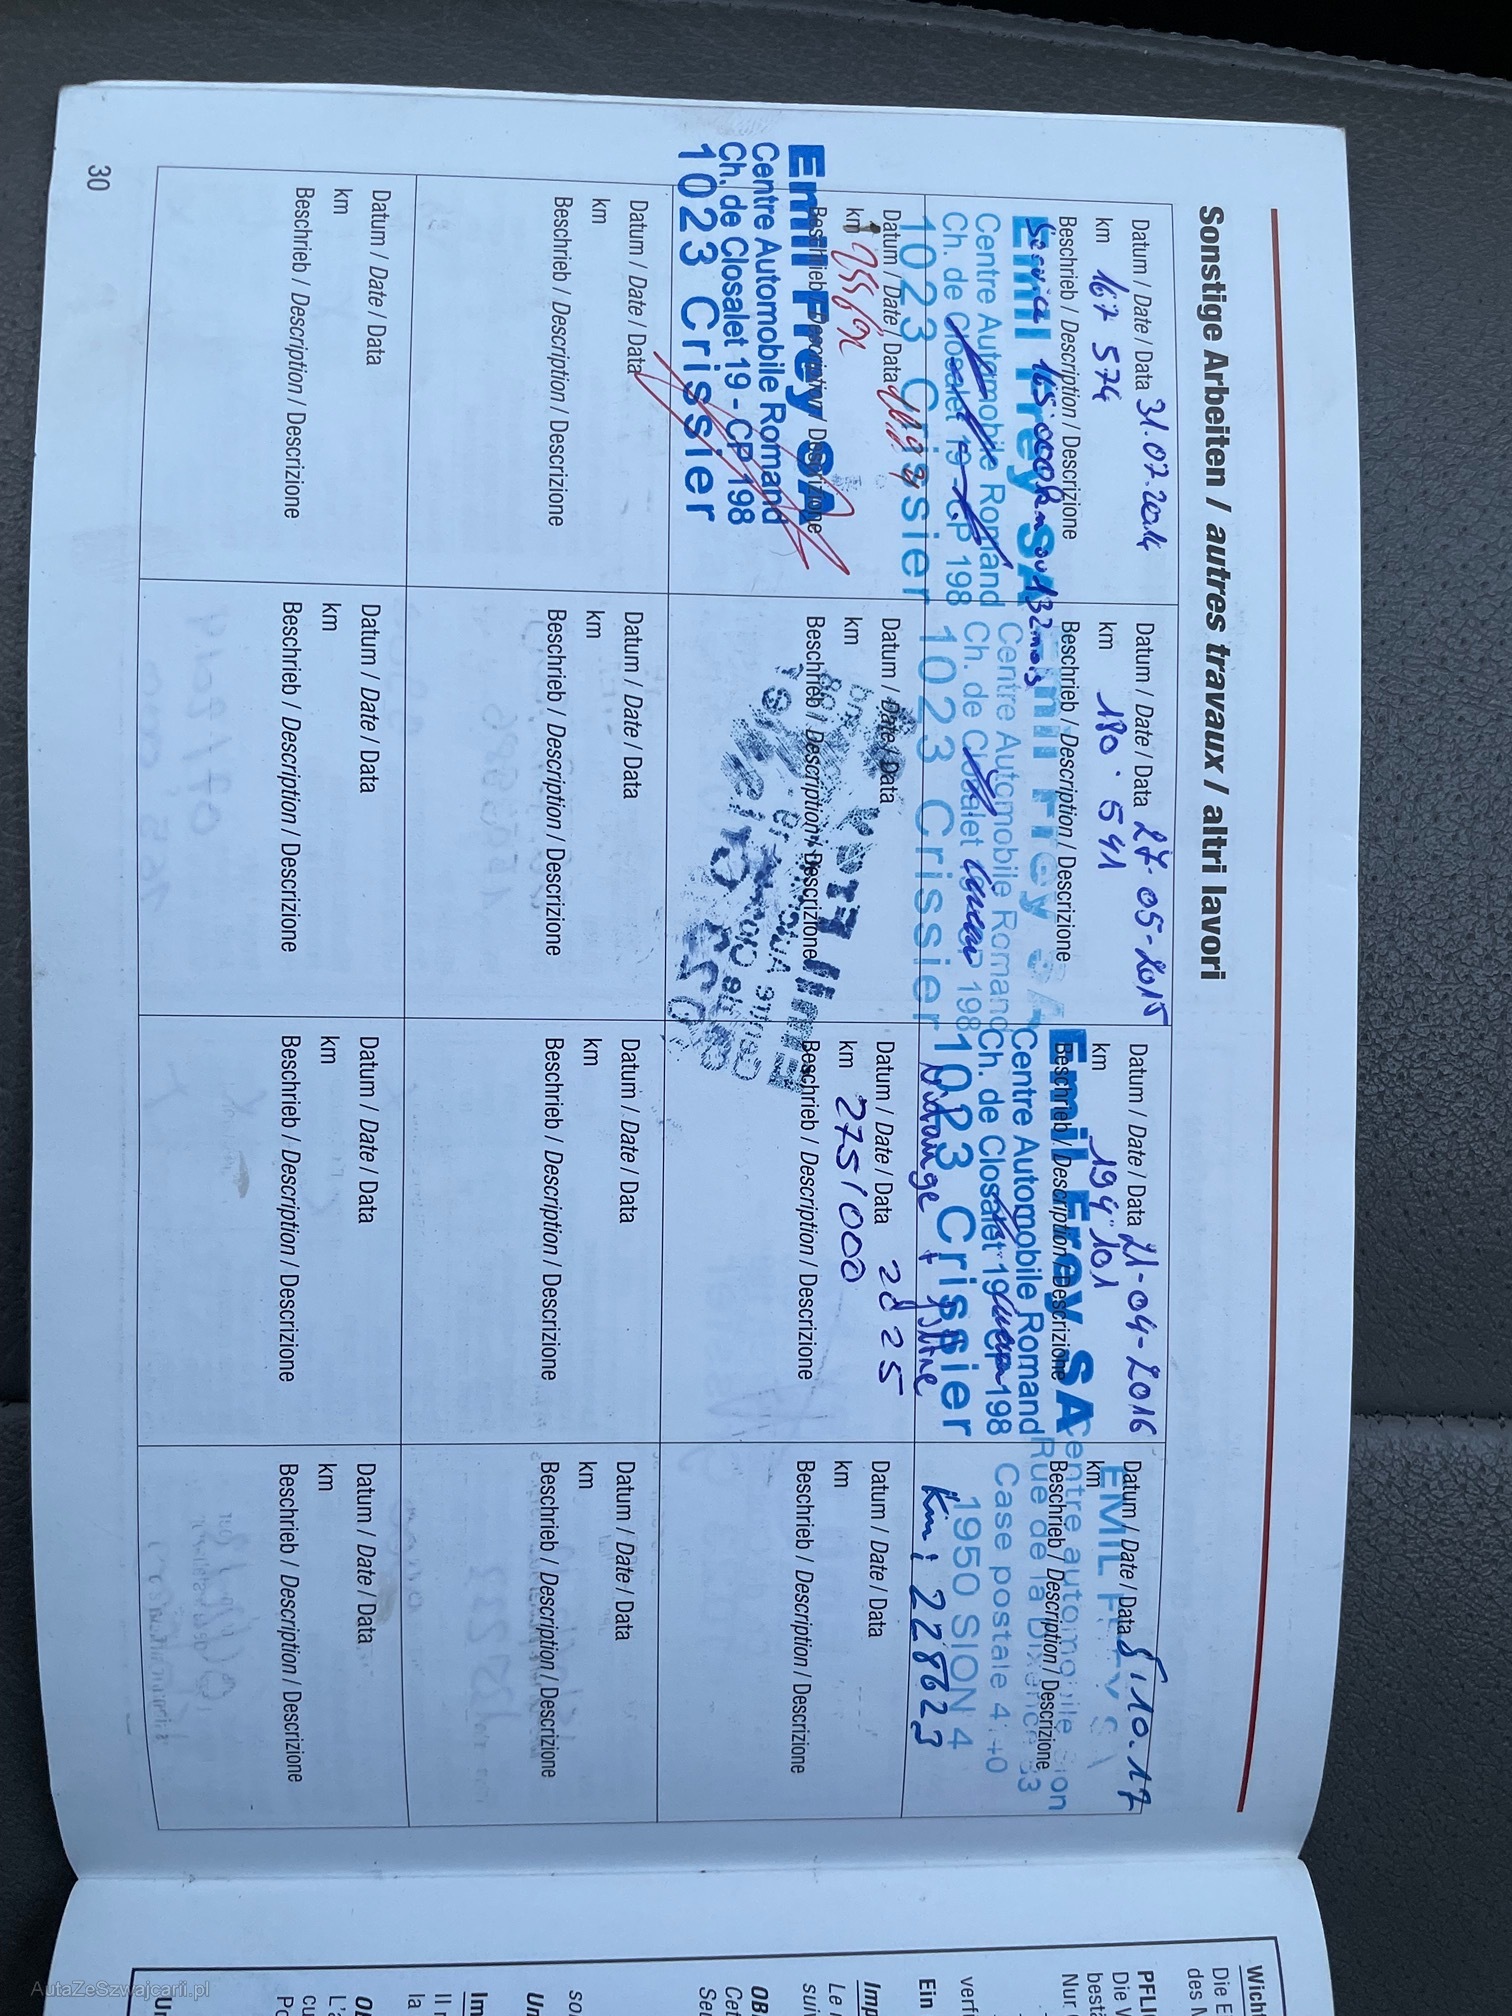 Sonstige Arbeiten / autres travaux / altri lavori
Datum / Date / Data 31.07.2014
km 167 574
Beschrieb / Description / Descrizione
Service 165.000km ou 132mois
Emil Frey SA
Centre Automobile Romand
Ch. de Closalet 19 - CP 198
1023 Crissier
Datum / Date / Data 27-05-2015
km 180.591
Beschrieb / Description / Descrizione
Emil Frey SA
Centre Automobile Romand
Ch. de Closalet 198
1023 Crissier
Datum / Date / Data 21-04-2016
km 194'101
Beschrieb / Description / Descrizione
Emil Frey SA
Centre Automobile Romand
Ch. de Closalet 19 198
1023 Crissier
Datum / Date / Data 5.10.17
km
Beschrieb / Description / Descrizione
EMIL FREY SA
Centre automobile Sion
Rue de la Dixence 83
Case postale
1950 SION 4
Km: 228623
Datum / Date / Data
km
Beschrieb / Description / Descrizione
Emil Frey SA
Centre Automobile Romand
Ch. de Closalet 19 - CP 198
1023 Crissier
Datum / Date / Data
km
Beschrieb / Description / Descrizione
+ filtre
Datum / Date / Data 2025
km 275'000
Beschrieb / Description / Descrizione
Datum / Date / Data
km
Beschrieb / Description / Descrizione
Datum / Date / Data
km
Beschrieb / Description / Descrizione
Datum / Date / Data
km
Beschrieb / Description / Descrizione
Datum / Date / Data
km
Beschrieb / Description / Descrizione
Datum / Date / Data
km
Beschrieb / Description / Descrizione
Datum / Date / Data
km
Beschrieb / Description / Descrizione
Datum / Date / Data
km
Beschrieb / Description / Descrizione
Datum / Date / Data
km
Beschrieb / Description / Descrizione
Datum / Date / Data
km
Beschrieb / Description / Descrizione
30
Die
des
Die
Nur
Ein
Le
AutaZeSzwajcarii.pl